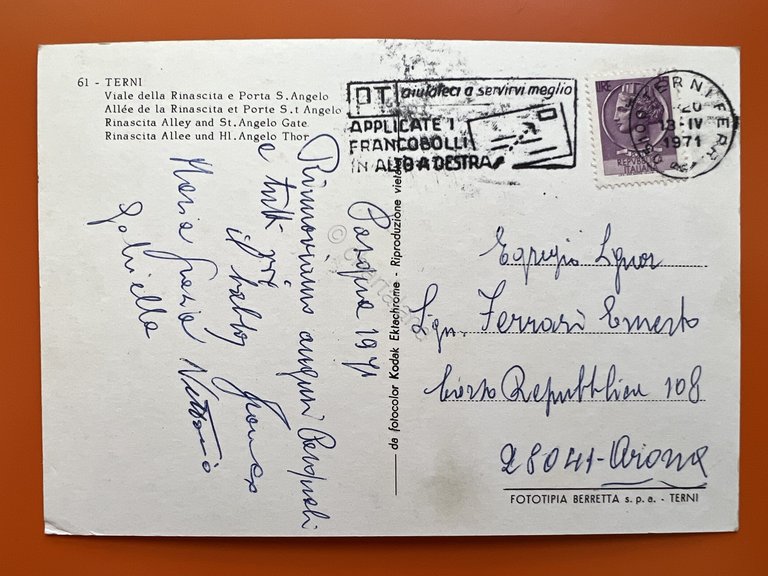 61 - TERNI
Viale della Rinascita e Porta S. Angelo
Allée de la Rinascita et Porte S.t Angelo
Rinascita Alley and St. Angelo Gate
Rinascita Allee und Hl. Angelo Thor
PT aiutateci a servirvi meglio
APPLICATE I
FRANCOBOLLI
IN ALTO A DESTRA
TERNI FERR
20
13 IV
1971
LIRE
REPVBBLICA
ITALIANA
Pasqua 1971
Rinnoviamo auguri Pasquali
a tutti
Maria Grazia Vittorio
Gabriella
da fotocolor Kodak Ektachrome - Riproduzione vietata
Egregio Signor
Sign. Ferrari Ernesto
Corso Repubblica 108
28041 - Arona
FOTOTIPIA BERRETTA s.p.a. - TERNI